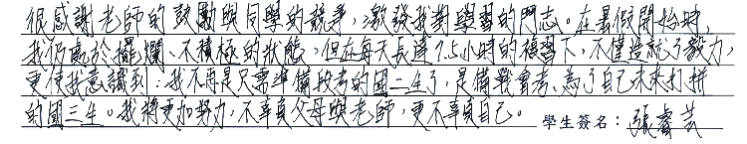 很感謝老師的鼓勵與同學的競爭，激發我對學習的鬥志。在暑假開始時，
我仍處於擺爛、不積極的狀態，但在每天長達7.5小時的複習下，不僅造就了毅力，
更使我意識到：我不再是只需準備段考的國二生了，是備戰會考、為了自己未來打拼
的國三生。我將更加努力，不辜負父母與老師，更不辜負自己。 學生簽名：張睿芸